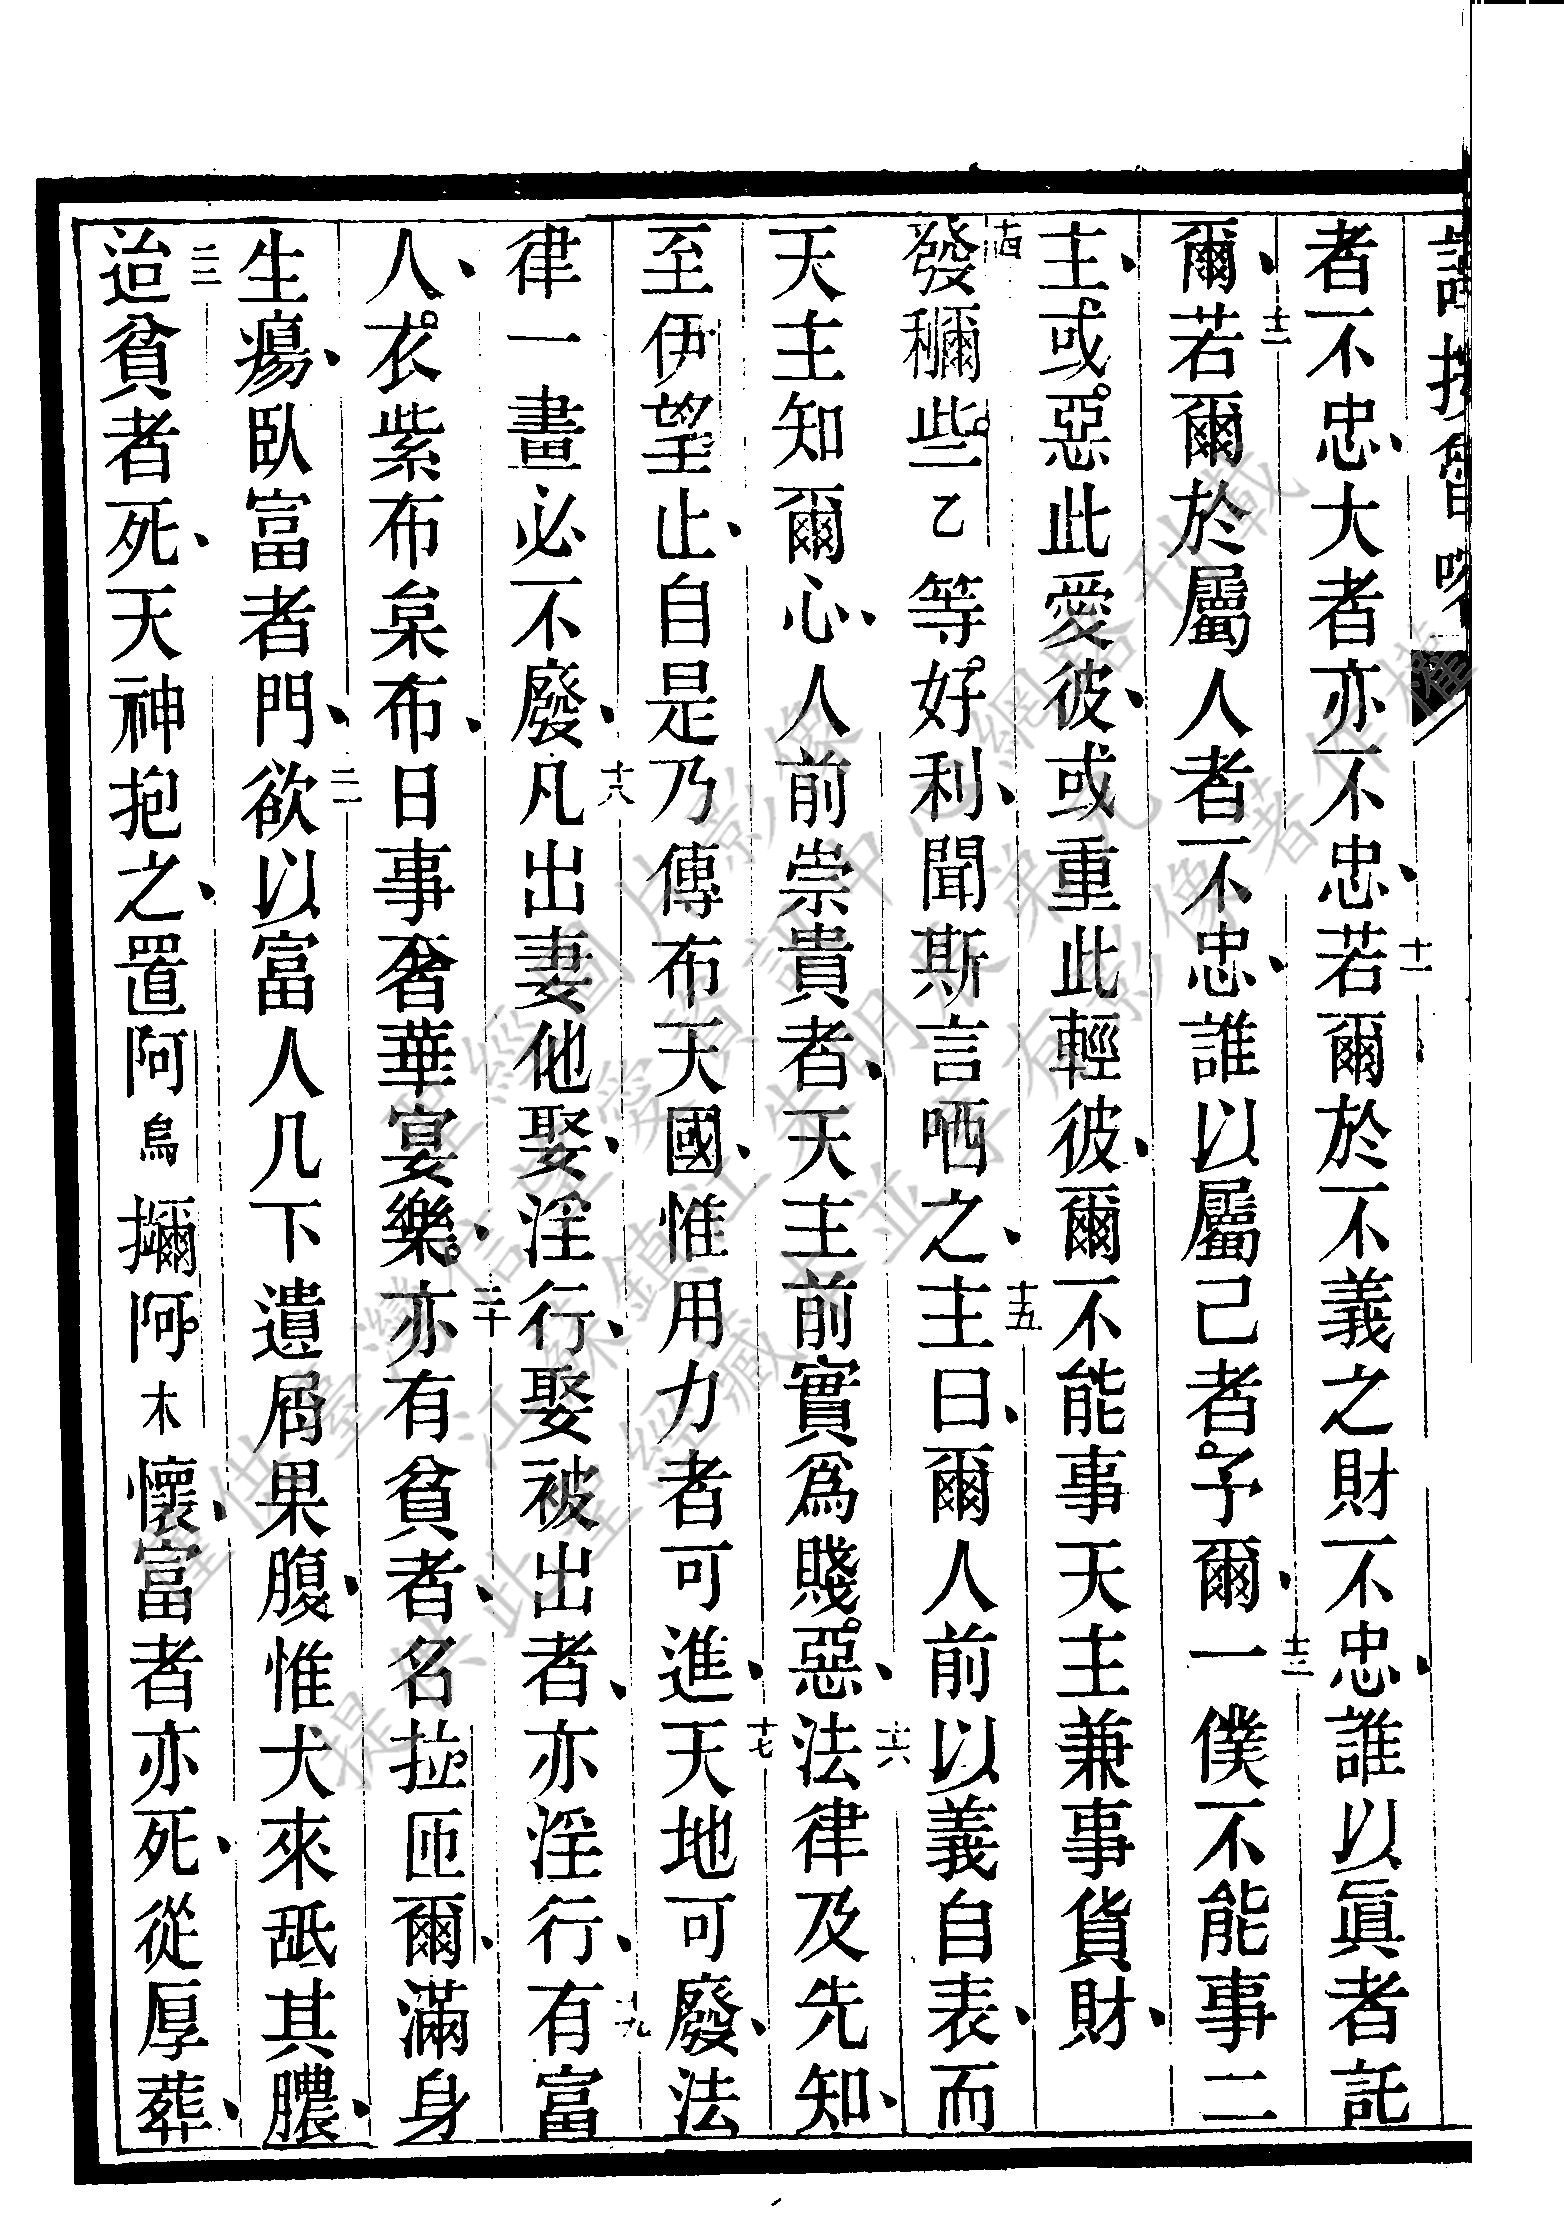 者不忠、大者亦不忠、十一若爾於不義之財不忠、誰以眞者託
爾、十二若爾於屬人者不忠、誰以屬己者。予爾、十三一僕不能事二
主、或。惡此愛彼、或重此輕彼、爾不能事天主兼事貨財、
十四發穪些。乙等。好利、聞斯言哂之、十五主曰、爾人前以義自表、而
天主知爾心、人前崇貴者、天主前實爲賤惡。、十六法律及先知、
至伊望止、自是乃傳布天國、惟用力者可進、十七天地可廢、法
律一畫必不廢、十八凡出妻他娶、淫行、娶被出者、亦淫行、十九有富
人、衣。紫布枲布、日事奢華宴樂。、二十亦有貧者、名拉匝爾、滿身
生瘍、臥富者門、二一欲以富人几下遺屑果腹、惟犬來舐其膿、
二二迨貧者死、天神抱之、置阿烏擟阿。木懷、富者亦死、從厚葬、
聖佛臺灣信望愛聖經圖片影像